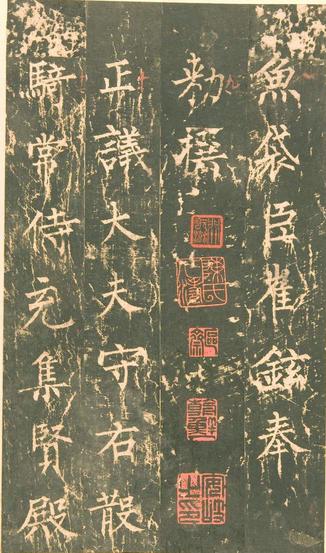 魚袋臣崔鉉奉
勑撰
正議大夫守右散
騎常侍充集賢殿